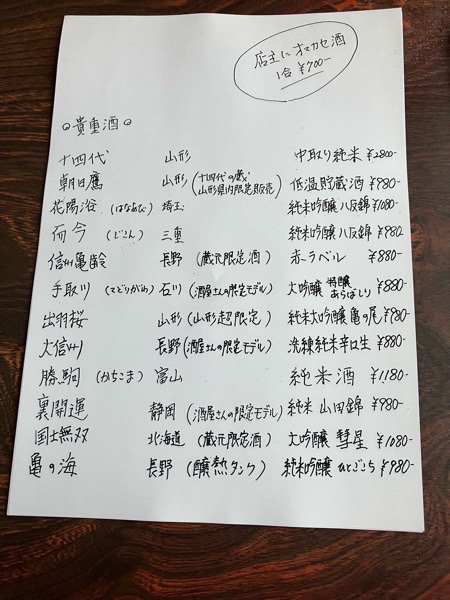 店主にオマカセ酒
1合 ¥700-
◎貴重酒◎
十四代 山形 中取り純米 ¥2800-
朝日鷹 山形 (十四代の蔵、山形県内限定販売) 低温貯蔵酒 ¥980-
花陽浴 (はなあび) 埼玉 純米吟醸 八反錦 ¥1080-
而今 (じこん) 三重 純米吟醸 八反錦 ¥980-
信州亀齢 長野 (蔵元限定酒) 赤ラベル ¥880-
手取川 (てどりがわ) 石川 (酒屋さんの限定モデル) 大吟醸 特醸あらばしり ¥880-
出羽桜 山形 (山形超限定) 純米大吟醸 亀の尾 ¥980-
大信州 長野 (酒屋さんの限定モデル) 洗練純米辛口生 ¥880-
勝駒 (かちこま) 富山 純米酒 ¥1,180-
裏開運 静岡 (酒屋さんの限定モデル) 純米 山田錦 ¥980-
国士無双 北海道 (蔵元限定酒) 大吟醸 彗星 ¥1080-
亀の海 長野 (醸熱タンク) 純米吟醸 ひとごこち ¥980-